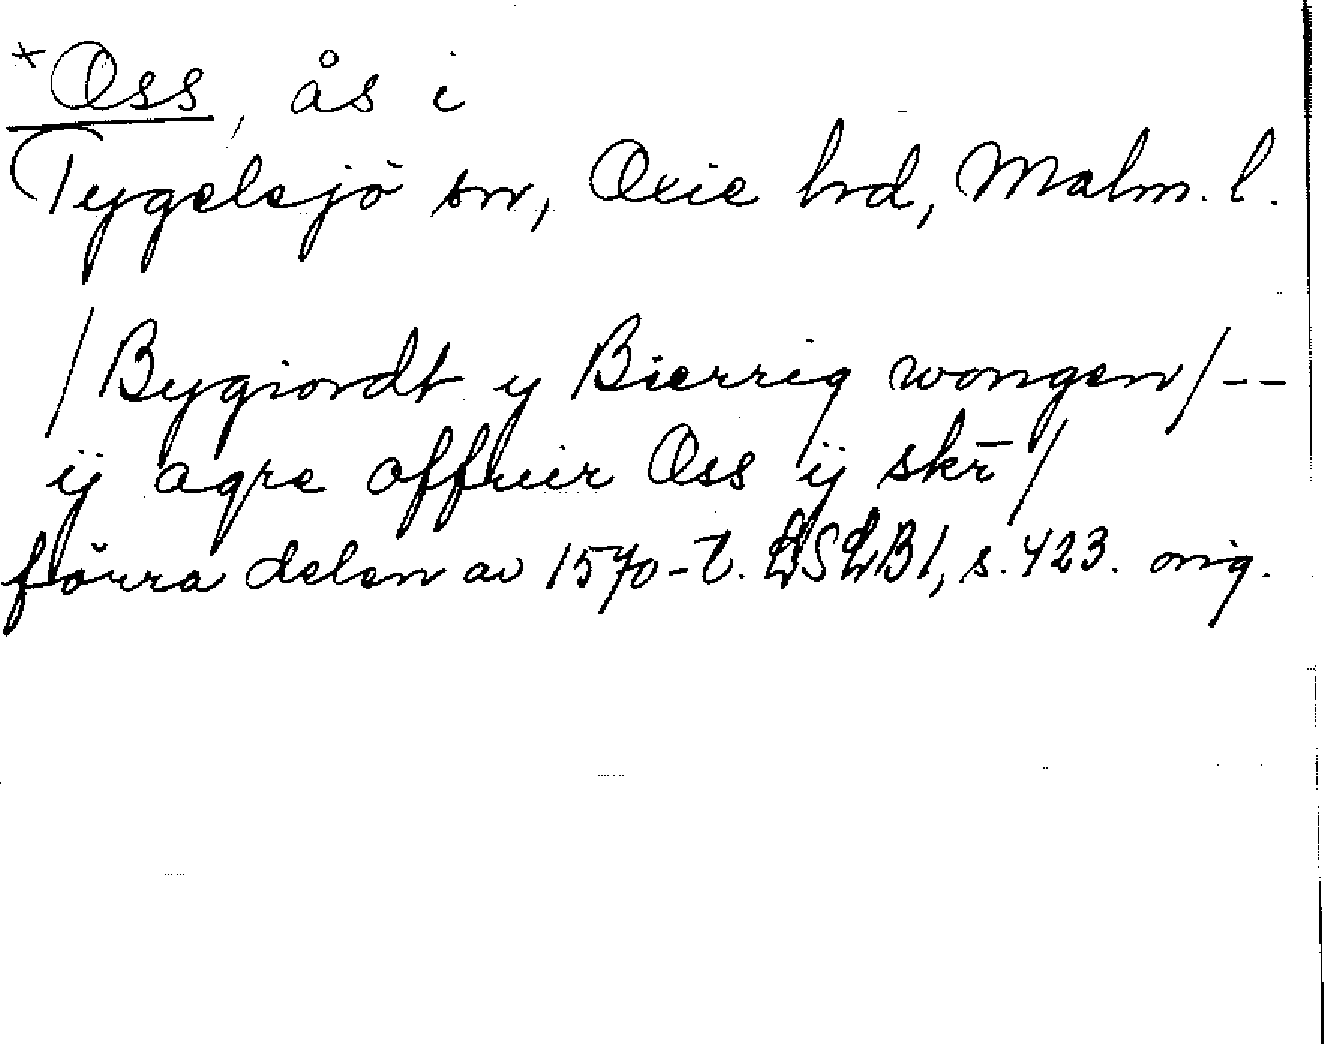 *Oss, ås i
Tygelsjö sn, Oxie hd, Malm. l.
/Bygiordt y Bierrig wongen/--
ij agre offuer Oss ij skr̄/
förra delen av 1570-t. LSLB1, s. 423. orig.